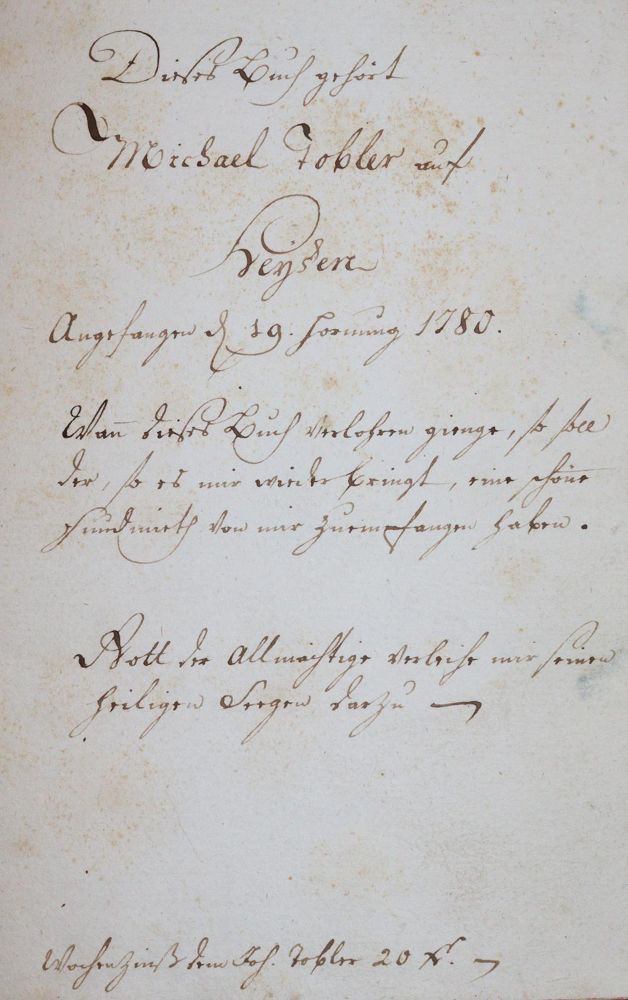 Dieses Buch gehört
Michael Tobler auf
Angefangen d 19. Hornung 1780.
Wan̅ dieses Buch verlohren gienge, so soll
der, so es mir wieder bringt, eine schöne
von mir zuempfangen haben.
Gott der Allmächtige verleihe mir seinen
heiligen Seegen darzu —
Wochenzinß dem Joh. Tobler 20 xr. —